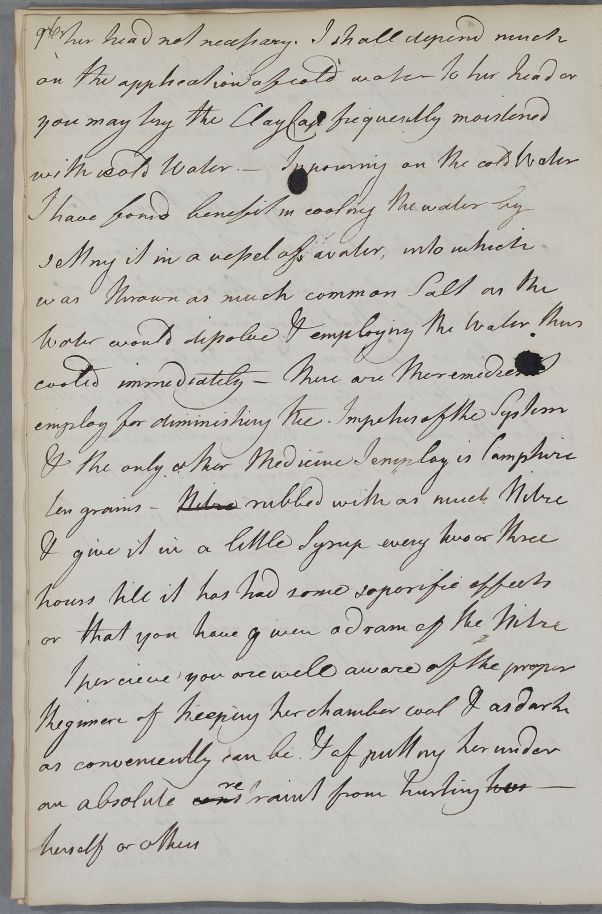 her head not necessary. I shall depend much
on the application of cold water to her head or
you may try the Clay Cap frequently moistened
with cold Water. — In pouring on the cold Water
I have found benefit in cooling the water by
setting it in a vessel of water, into which
was thrown as much common Salt as the
Water would dissolve & employing the Water thus
cooled immediately — these are the remedies I
employ for diminishing the Impetus of the System
& the only other Medicine I employ is Camphire
ten grains — Nitre rubbed with as much Nitre
& give it in a little Syrup every two or three
hours till it has had some soporific effects
or that you have given a dram of the Nitre
I percieve you are well aware of the proper
Regimen of keeping her chamber cool & as dark
as conveniently can be & of putting her under
an absolute restraint from hurting —
herself or others